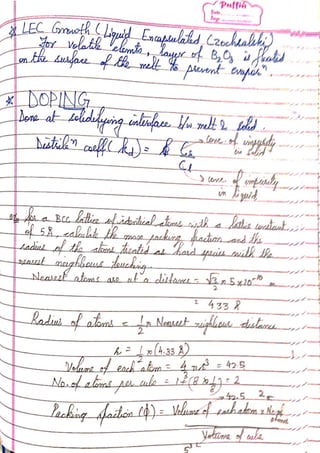 Puffin
Date
Page
* LEC Growth (Liquid Encapsulated Czochralski)
For volatile elemts, layer of B₂O₃ is floated
on the surface of the melt to prevent evaporⁿ.
* DOPING
Done at solidifying interface b/w melt & solid.
Distribⁿ coeff (kd) = Cs → conc. of impurity in solid
Cl
→ conc. of impurity
in liquid
for a BCC lattice of identical atoms with a lattice constant
of 5Å, calculate the max packing fraction and the
radius of the atoms treated as hard spheres with the
nearest neighbours touching.
Nearest atoms are at a distance = √3/2 × 5×10⁻¹⁰ m
= 4.33 Å
Radius of atoms = 1/2 × Nearest neighbour distance
r = 1/2 × (4.33 Å)
Volume of each atom = 4/3 πr³ = 42.5
No. of atoms per cube = 1+(8×1/8) = 2
→ 42.5 2
Packing fraction (φ) = Volume of each atom × No. of atoms
Volume of cube
5³